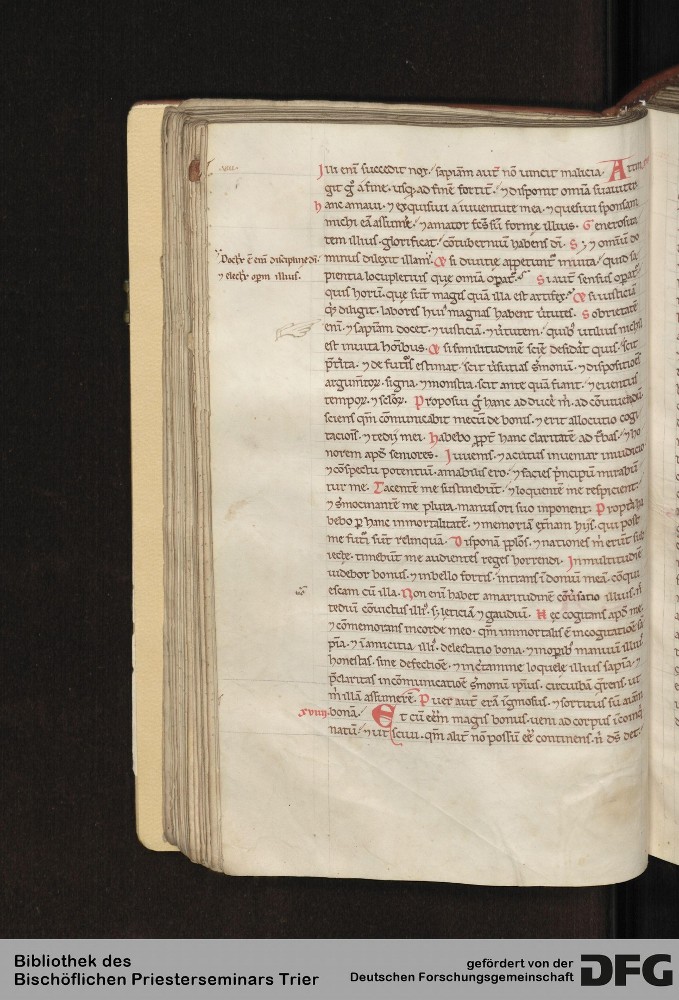 Illi enī succedit nox. sapīam aūt nō vincit malicia. Attin
git gͦ a fine. usq; ad finē fortiť. ⁊ disponit omīa suauiter.
hanc amaui. ⁊ exquisiui a iuuentute mea. ⁊ quesiui sponsam
michi eā assumˀe. ⁊ amator fcs̄ sū forme illius. Generosita
tem illius. glorificat. cōtuberniū habens dī. S; ⁊ omīuꝫ do
minus dilexit illam. Et si diuitie appetunť in uita. quid sa
Doctˀx ē enī discipline dī.
⁊ electˀx opeꝝ illius.
pientia locupletius que omīa opať. Si aūt sensus opať.
quis horuꝫ. que sūt magis quā illa est artifex. Et si iusticiā
qˢ diligit. labores huiꝰ magnas habent uˀtutes. Sobrietatē
enī. ⁊ sapīam docet. ⁊ iusticiā. ⁊ uˀtutem. quibꝰ utilius nichil
est in uita hoībus. Et si similitudinē scīe desidāt quis. scit
pˀtˀita. ⁊ de futurˢ estimat. scit uˀsutias sˀmonū. ⁊ dispositioēs
argumtoꝝ. signa. ⁊ monstra. scit ante quā fiant. ⁊ euentus
tempoꝝ. ⁊ sclōꝝ. Proposui gͦ hanc adducˀe m̄. ad cōuiuendū.
sciens qm̄ communicabit mecū de bonis. ⁊ erit allocutio cogi
tacioīs. ⁊ tedij mei. habebo ꝓpt̄ hanc claritatē ad tˀbas. ⁊ ho
norem apď seniores. Iuuenis. ⁊ acutus inueniar in iudicio
⁊ cōspectu potentiū. amabilis ero. ⁊ facies pˀncipū mirabū
tur me. Tacentē me sustinebūt. ⁊ loquentē me respicient.
⁊ sˀmocinantē me plura. manus ori suo inponent. Proptˀa ha
bebo ꝑ hanc inmortalitatē. ⁊ memoriā etˀnam hijs. qui post
me futˀi sūt relinquā. Disponā ꝓplos. ⁊ nationes m̄ erūt sub
iecte. timebūt me audientes reges horrendi. In multitudīe
uidebor bonus. ⁊ in bello fortis. intrans ī domū meā. cōqui
escam cū illa. Non enī habet amaritudinē cōuˀsatio illius. n̄
tediū cōuictus illiꝰ. s; leticiā ⁊ gaudiū. Hec cogitans apď me.
⁊ cōmemorans in corde meo. qm̄ immortalis ē in cogitatioē sa
pīa. ⁊ ī amicitia illiꝰ. delectatio bona. ⁊ in opibꝰ manuū illiꝰ
honestas. sine defectioē. ⁊ in cˀtamine loquele illius sapīa. ⁊
pˀclaritas in cōmunicatioē sˀmonū ipīus. circuibā qˀrens. ut
m̄ illā assumere. Puer aūt erā īgniosus. ⁊ sortitus sū aīam
xviiij. bonā. Et cū eēm magis bonus. ueni ad corpus ī coinqˀ
natū. ⁊ ut sciui. qm̄ alit̄ nō possū eē continens. n̄ ds̄ det.
Bibliothek des
Bischöflichen Priesterseminars Trier
gefördert von der
Deutschen Forschungsgemeinschaft
DFG